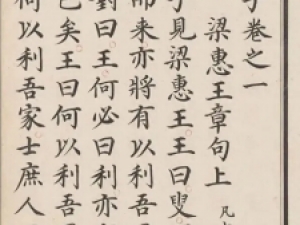 子卷之一
梁惠王章句上 凡
子見梁惠王王曰叟
而来亦將有以利吾
對曰王何必曰利亦
已矣王曰何以利吾
何以利吾家士庶人